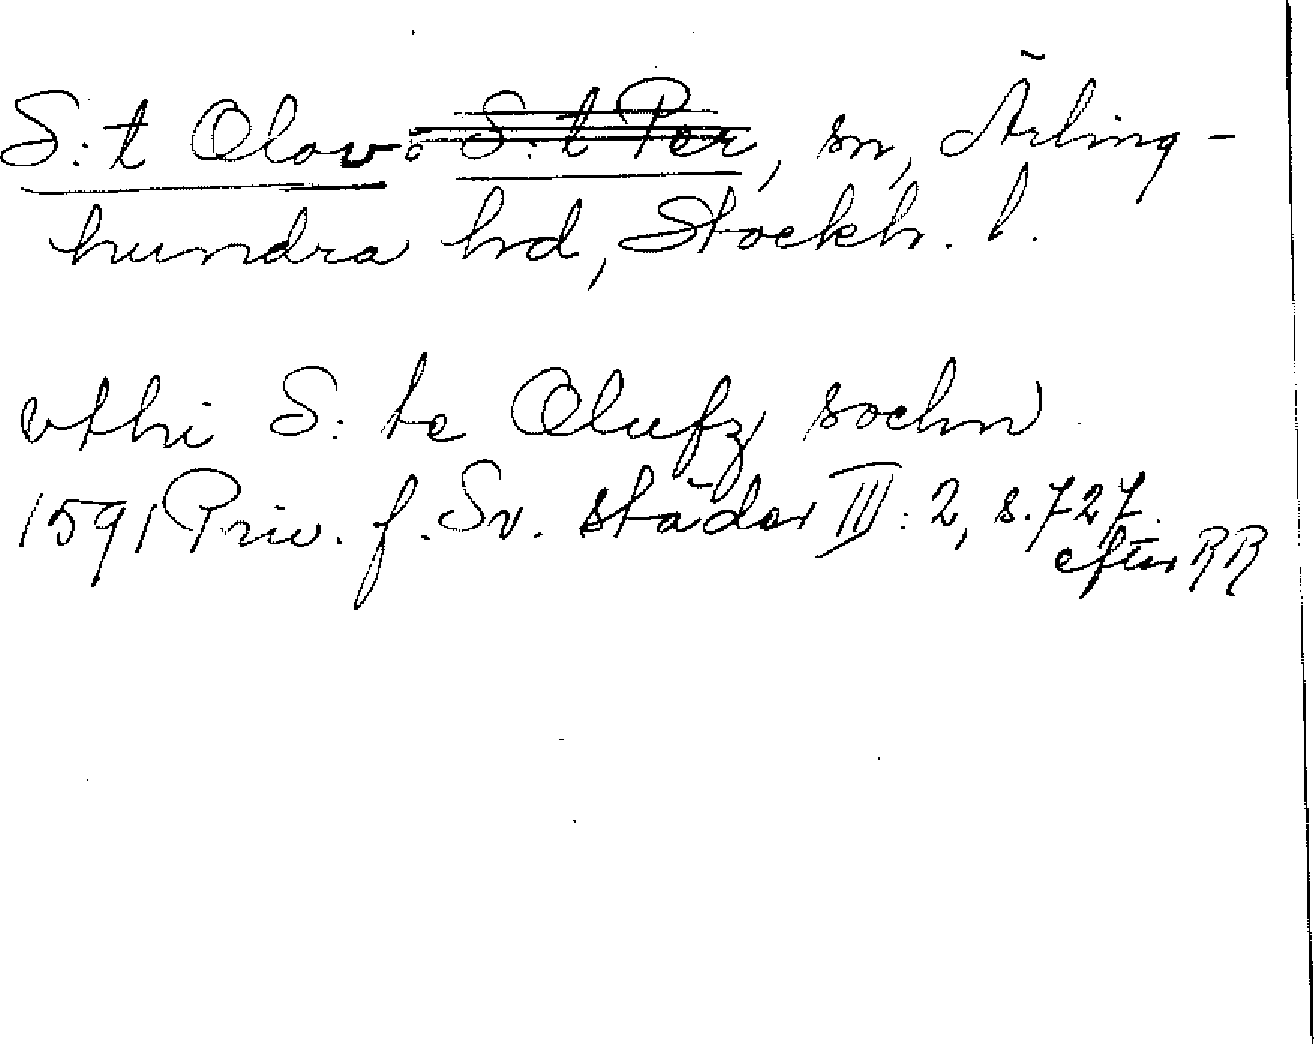 S:t Olov o S:t Per, sn, Ärling-
hundra hd, Stockh. l.
vthi S:te Olufz sochn
1591 Priv. f. Sv. städer III:2, s. 727.
efter RR